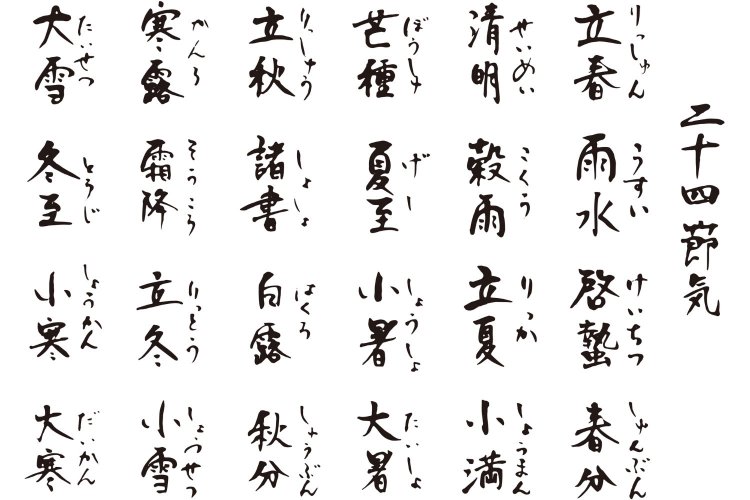 二十四節気
立春
りっしゅん
雨水
うすい
啓蟄
けいちつ
春分
しゅんぶん
清明
せいめい
穀雨
こくう
立夏
りっか
小満
しょうまん
芒種
ぼうしゅ
夏至
げし
小暑
しょうしょ
大暑
たいしょ
立秋
りっしゅう
諸書
しょしょ
白露
はくろ
秋分
しゅうぶん
寒露
がんろ
霜降
そうこう
立冬
りっとう
小雪
しょうせつ
大雪
たいせつ
冬至
とうじ
小寒
しょうかん
大寒
だいかん